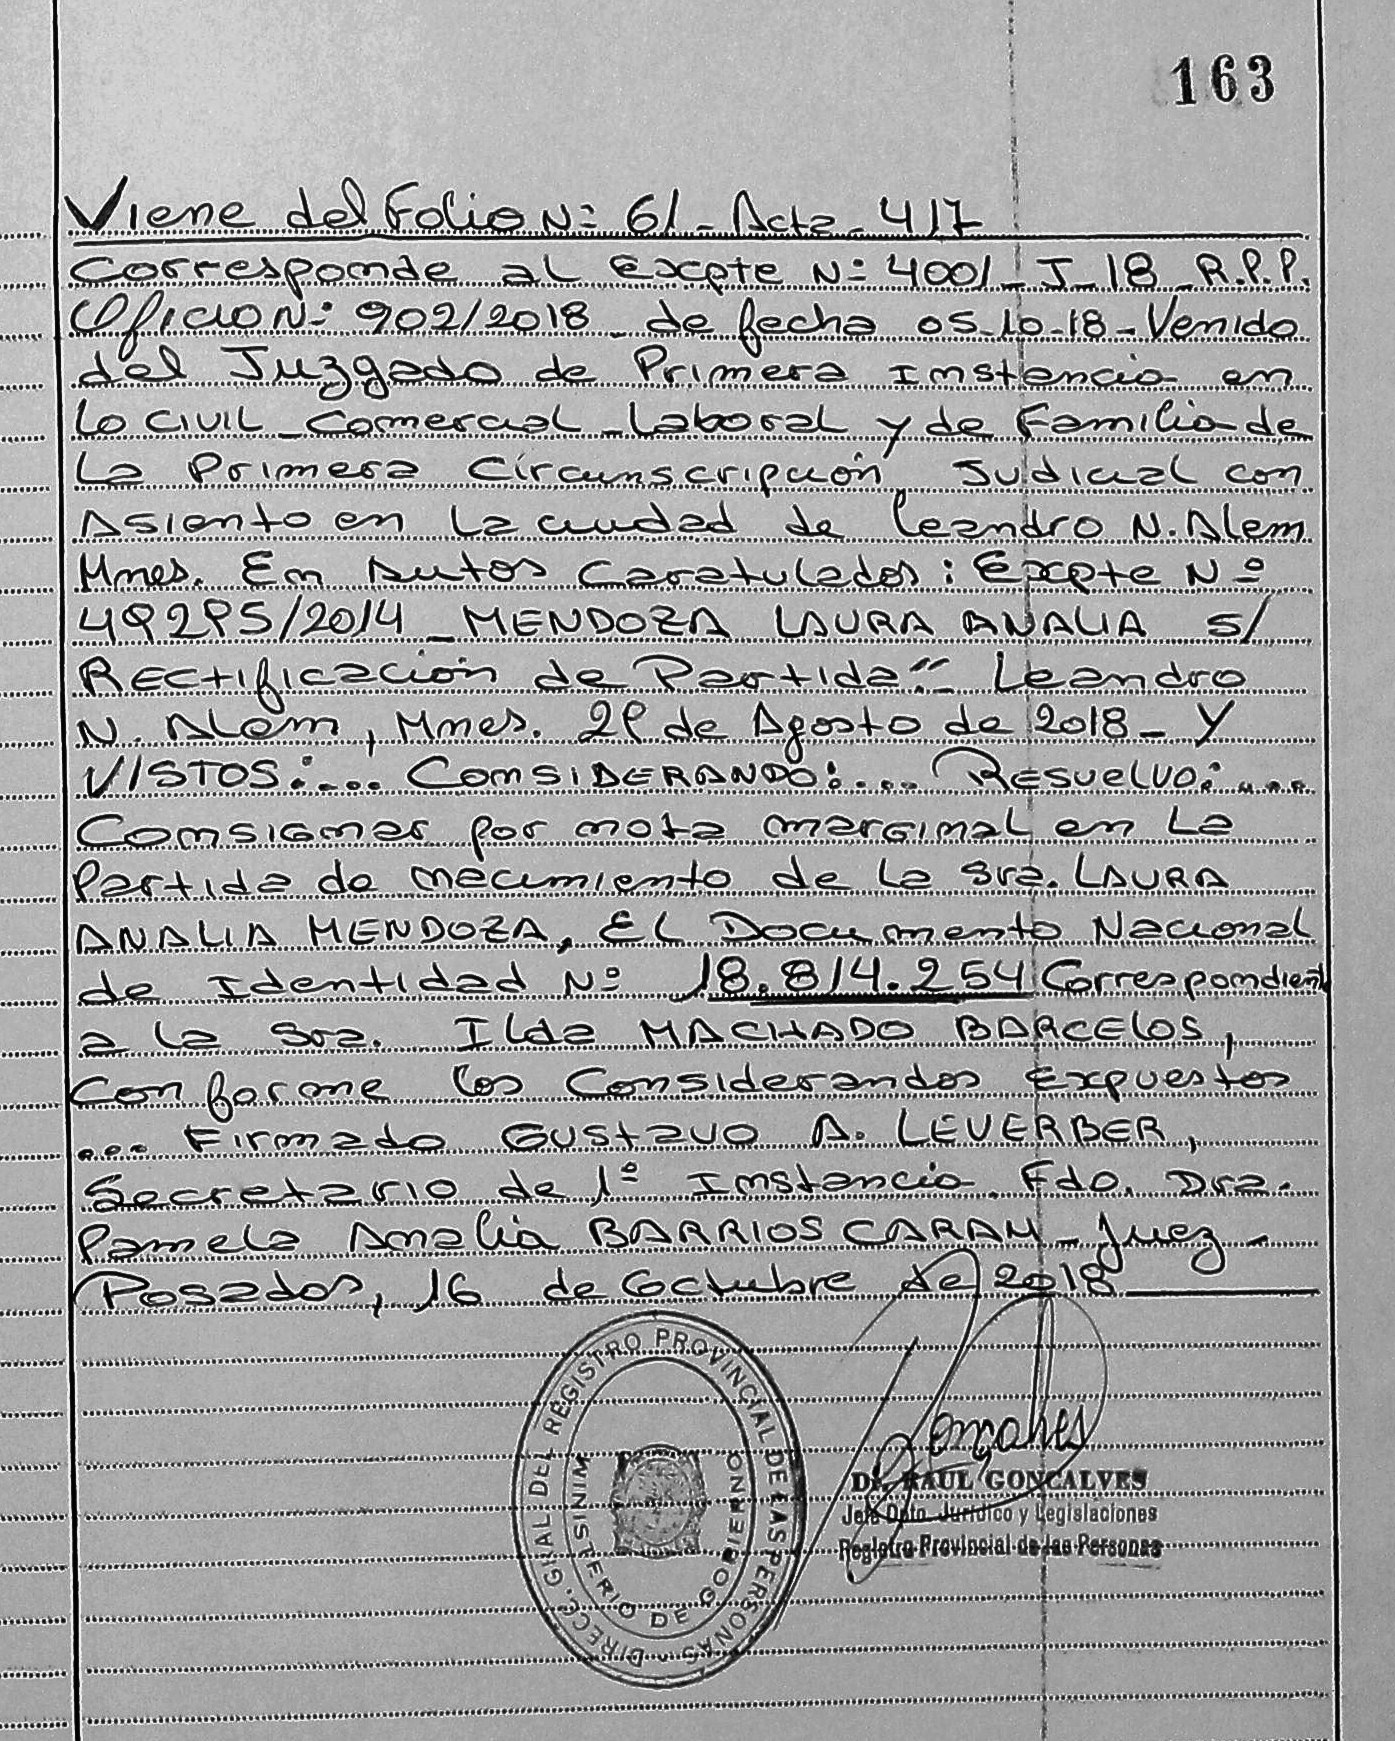 163
Viene del Folio Nº 61 - Acta - 417
Corresponde al Expte Nº 4001 - J - 18 - R.P.P.
Oficio Nº 902/2018 - de fecha 05-10-18 - Venido
del Juzgado de Primera Instancia en
Lo Civil - Comercial - Laboral y de Familia de
La Primera Circunscripción Judicial con
Asiento en La ciudad de Leandro N. Alem
Mnes. En Autos Caratulados: Expte Nº
49295/2014 - MENDOZA LAURA ANALIA S/
Rectificación de Partida" - Leandro
N. Alem, Mnes. 29 de Agosto de 2018 - Y
VISTOS:... CONSIDERANDO:... RESUELVO:....
Consignar por nota marginal en La
Partida de nacimiento de La Sra. LAURA
ANALIA MENDOZA, El Documento Nacional
de Identidad Nº 18.814.254 Correspondiente
a La Sra. Ilda MACHADO BARCELOS,
Conforme los Considerandos Expuestos
... Firmado GUSTAVO A. LEVERBER,
Secretario de 1º Instancia. Fdo. Dra.
Pamela Analia BARRIOS CARAM - Juez -
Posadas, 16 de Octubre de 2018
DIRECC. GRAL DEL REGISTRO PROVINCIAL DE LAS PERSONAS
MINISTERIO DE GOBIERNO
Gonçalves
Dr. RAUL GONCALVES
Jefe Dpto. Jurídico y Legislaciones
Registro Provincial de las Personas